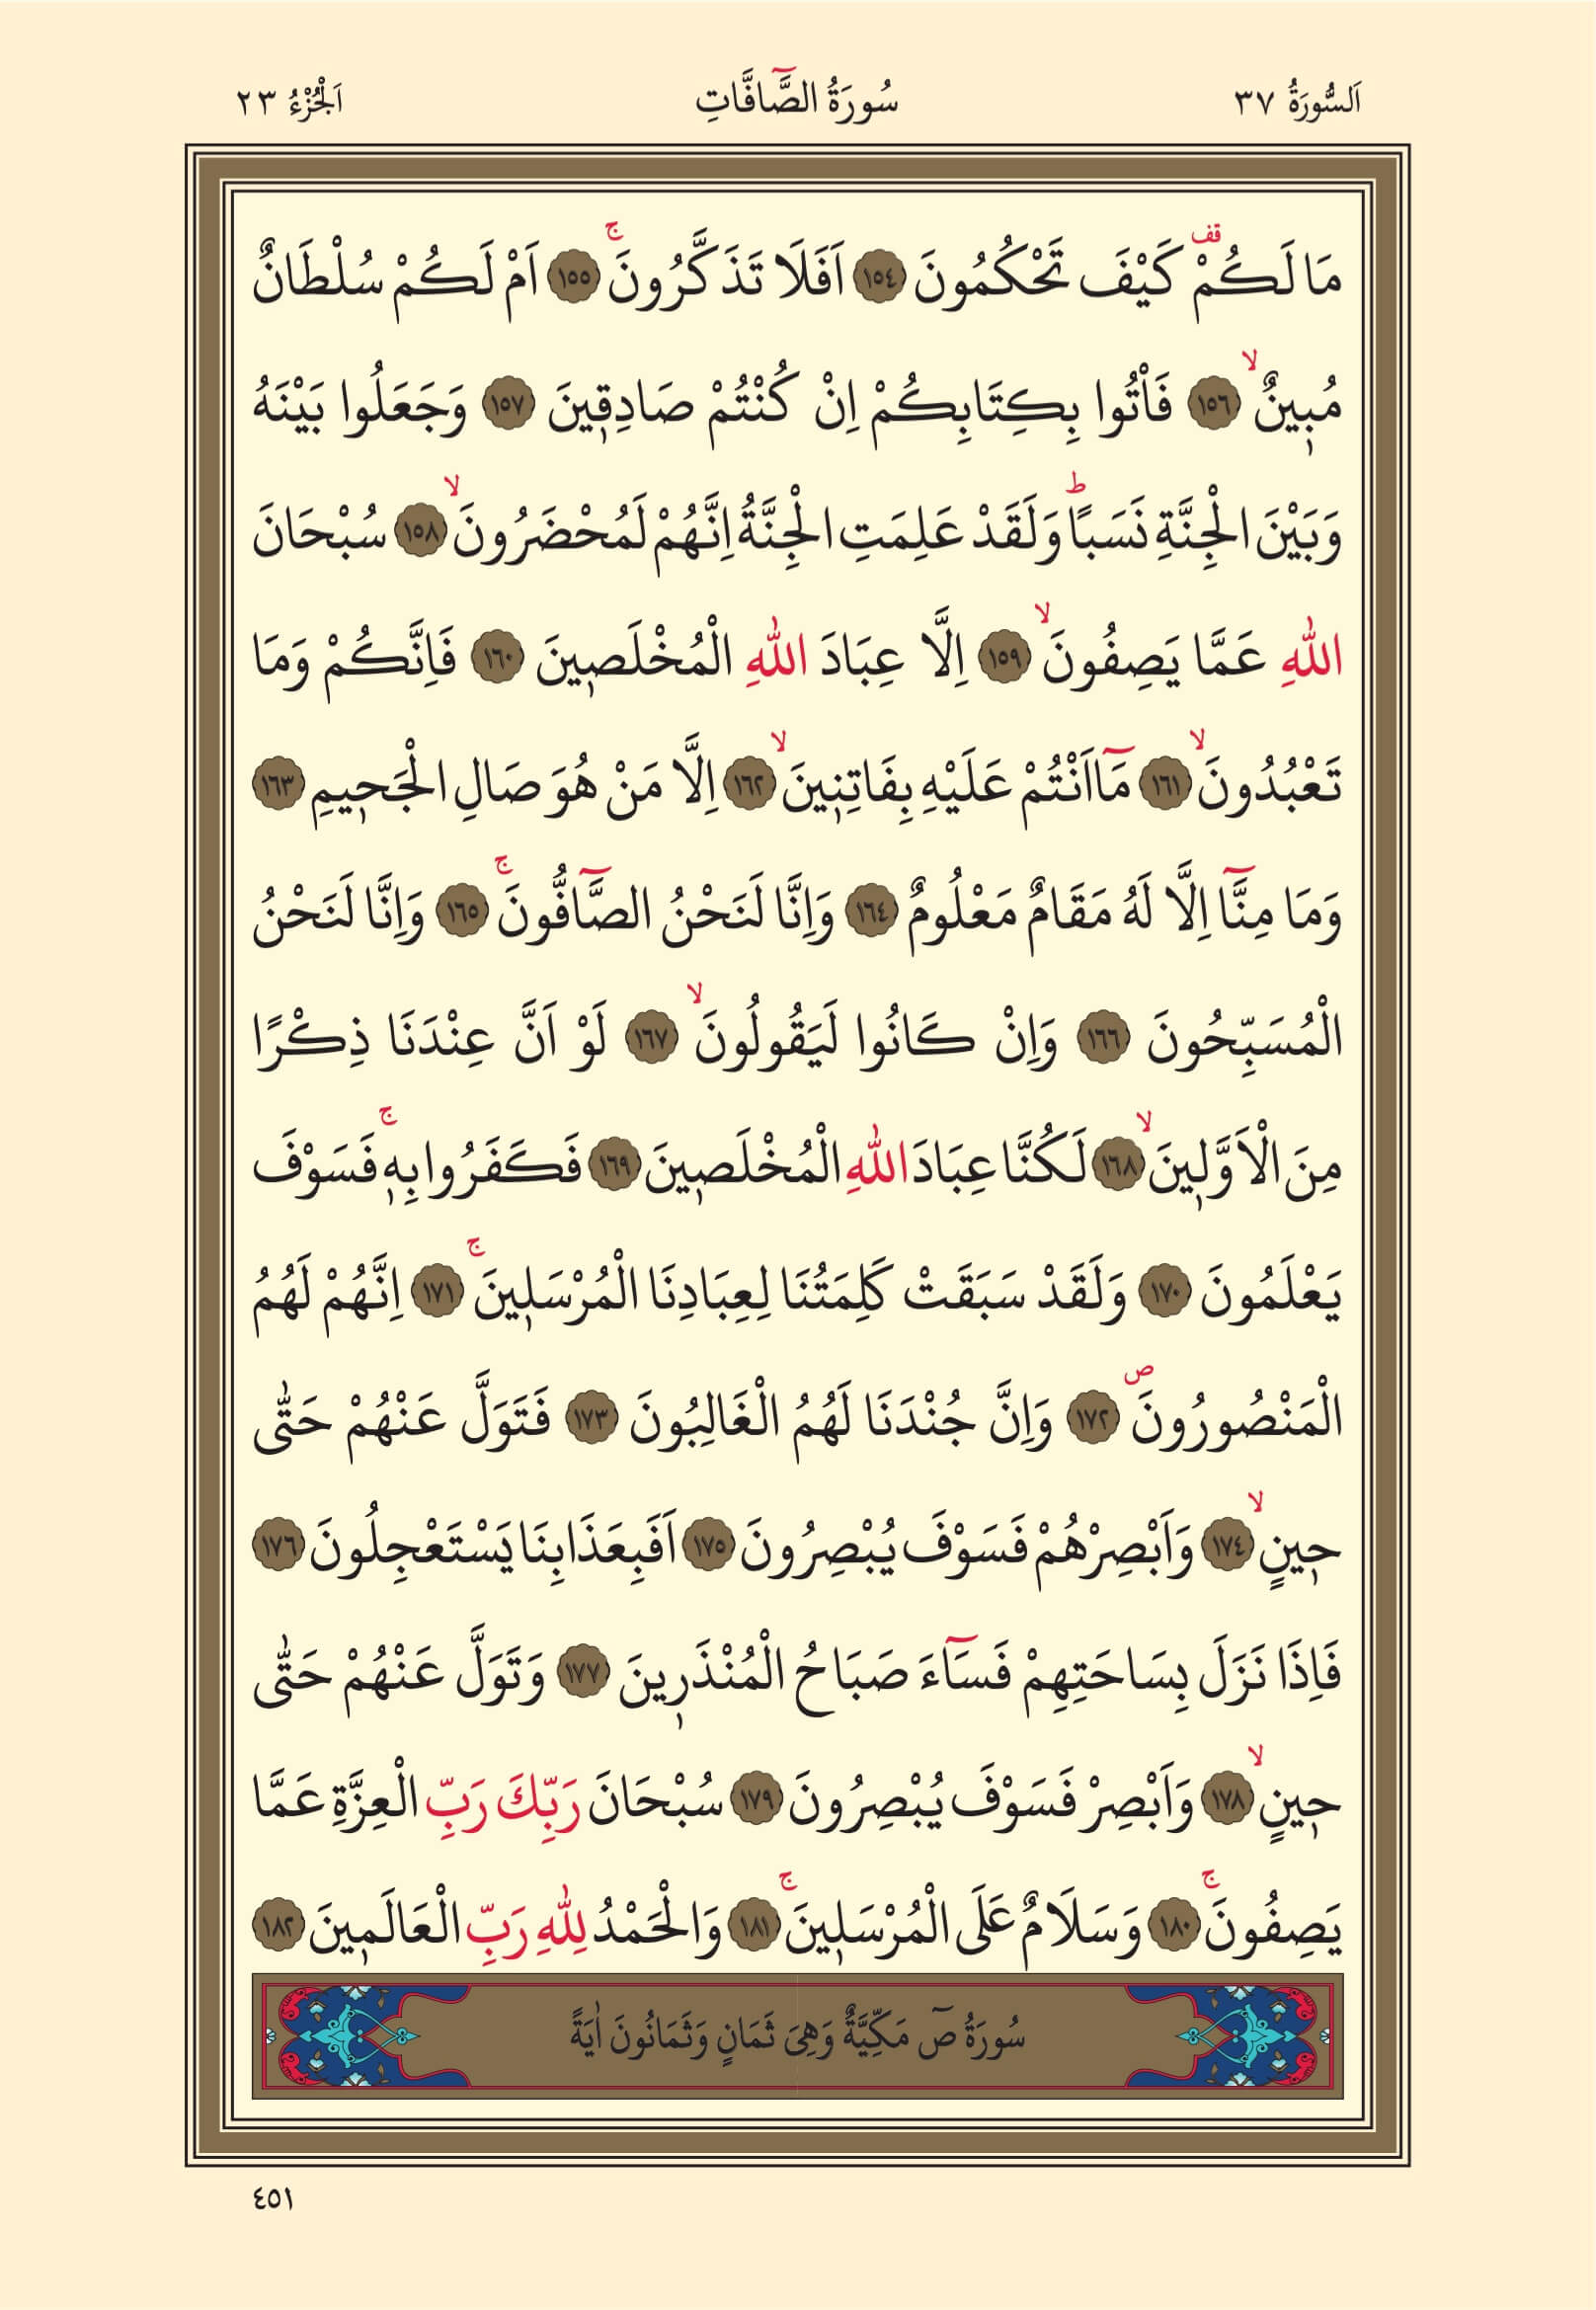 اَلسُّورَةُ ٣٧ سُورَةُ الصَّٓافَّاتِ اَلْجُزْءُ ٢٣
مَا لَكُمْ۠ قف كَيْفَ تَحْكُمُونَ ١٥٤ اَفَلَا تَذَكَّرُونَۚ ١٥٥ اَمْ لَكُمْ سُلْطَانٌ
مُب۪ينٌۙ ١٥٦ فَأْتُوا بِكِتَابِكُمْ اِنْ كُنْتُمْ صَادِق۪ينَ ١٥٧ وَجَعَلُوا بَيْنَهُ
وَبَيْنَ الْجِنَّةِ نَسَبًاۜ وَلَقَدْ عَلِمَتِ الْجِنَّةُ اِنَّهُمْ لَمُحْضَرُونَۙ ١٥٨ سُبْحَانَ
اللّٰهِ عَمَّا يَصِفُونَۙ ١٥٩ اِلَّا عِبَادَ اللّٰهِ الْمُخْلَص۪ينَ ١٦٠ فَاِنَّكُمْ وَمَا
تَعْبُدُونَۙ ١٦١ مَٓا اَنْتُمْ عَلَيْهِ بِفَاتِن۪ينَۙ ١٦٢ اِلَّا مَنْ هُوَ صَالِ الْجَح۪يمِ ١٦٣
وَمَا مِنَّٓا اِلَّا لَهُ مَقَامٌ مَعْلُومٌ ١٦٤ وَاِنَّا لَنَحْنُ الصَّٓافُّونَۚ ١٦٥ وَاِنَّا لَنَحْنُ
الْمُسَبِّحُونَ ١٦٦ وَاِنْ كَانُوا لَيَقُولُونَۙ ١٦٧ لَوْ اَنَّ عِنْدَنَا ذِكْرًا
مِنَ الْاَوَّل۪ينَۙ ١٦٨ لَكُنَّا عِبَادَ اللّٰهِ الْمُخْلَص۪ينَ ١٦٩ فَكَفَرُوا بِه۪ۚ فَسَوْفَ
يَعْلَمُونَ ١٧٠ وَلَقَدْ سَبَقَتْ كَلِمَتُنَا لِعِبَادِنَا الْمُرْسَل۪ينَۚ ١٧١ اِنَّهُمْ لَهُمُ
الْمَنْصُورُونَ ص ١٧٢ وَاِنَّ جُنْدَنَا لَهُمُ الْغَالِبُونَ ١٧٣ فَتَوَلَّ عَنْهُمْ حَتّٰى
ح۪ينٍۙ ١٧٤ وَاَبْصِرْهُمْ فَسَوْفَ يُبْصِرُونَ ١٧٥ اَفَبِعَذَابِنَا يَسْتَعْجِلُونَ ١٧٦
فَاِذَا نَزَلَ بِسَاحَتِهِمْ فَسَٓاءَ صَبَاحُ الْمُنْذَر۪ينَ ١٧٧ وَتَوَلَّ عَنْهُمْ حَتّٰى
ح۪ينٍۙ ١٧٨ وَاَبْصِرْ فَسَوْفَ يُبْصِرُونَ ١٧٩ سُبْحَانَ رَبِّكَ رَبِّ الْعِزَّةِ عَمَّا
يَصِفُونَۚ ١٨٠ وَسَلَامٌ عَلَى الْمُرْسَل۪ينَۚ ١٨١ وَالْحَمْدُ لِلّٰهِ رَبِّ الْعَالَم۪ينَ ١٨٢
سُورَةُ صٓ مَكِّيَّةٌ وَهِيَ ثَمَانٍ وَثَمَانُونَ اٰيَةً
٤٥١